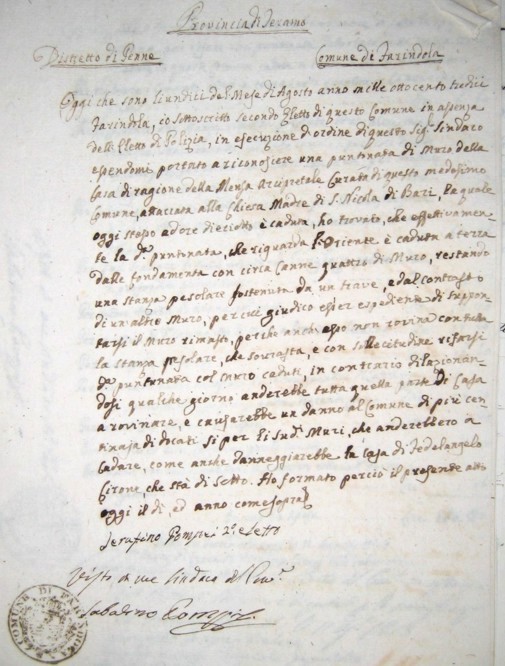 Provincia di Teramo
Distretto di Penne
Comune di Farindola
Oggi che sono li undici del Mese di Agosto anno mille ottocento tredici
Farindola, io sottoscritto secondo Eletto di questo Comune in assenza
dell'Eletto di Polizia, in esecuzione d'ordine di questo Sig.r Sindaco
essendomi portato a riconoscere una puntonata di Muro della
Casa di ragione della Mensa Arcipretale Curata di questo medesimo
Comune, attaccata alla Chiesa Madre di S. Nicola di Bari, la quale
oggi stesso ad ore dieciotto è caduta, ho trovato, che effettivamen
te la d.a puntonata, che riguarda l'Oriente è caduta a terra
dalle fondamenta con circa Canne quattro di Muro, restando
una stanza pesolare sostenuta da un trave, e dal contrasto
di un altro Muro, perciò giudico esser espediente di suppon
tarsi il Muro rimasto, perchè anch'esso non rovina con tutta
la stanza pesolare, che sovrasta, e con sollecitudine rifarsi
d.a puntonata col muro caduti, in contrario dilazionan
dosi qualche giorno anderebbe tutta quella parte di Casa
a rovinare, e causarebbe un danno al Comune di più cen
tinaja di docati si per li sud.i Muri, che anderebbero a
cadare, come anche danneggiarebbe la Casa di Fedelangelo
Cirone, che stà di sotto. Ho formato perciò il presente atto
oggi il dì, ed anno come sopra
Serafino Pompei 2.o eletto
Visto da me Sindaco
Sabatino Pompei
COMUNE DI FARINDOLA